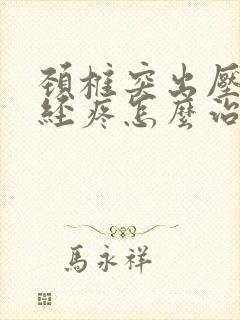 頸椎突出壓
經疼怎麼治
馬永祥